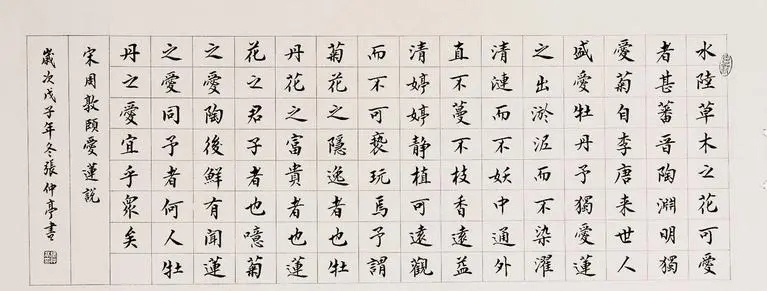 水陸草木之花可愛
者甚蕃晉陶淵明獨
愛菊自李唐来世人
盛愛牡丹予獨愛蓮
之出淤泥而不染濯
清漣而不妖中通外
直不蔓不枝香遠益
清婷婷静植可遠觀
而不可褻玩焉予謂
菊花之隱逸者也牡
丹花之富貴者也蓮
花之君子者也噫菊
之愛陶後鮮有聞蓮
之愛同予者何人牡
丹之愛宜乎衆矣
宋周敦頤愛蓮説
歲次戊子年冬張仲亭書